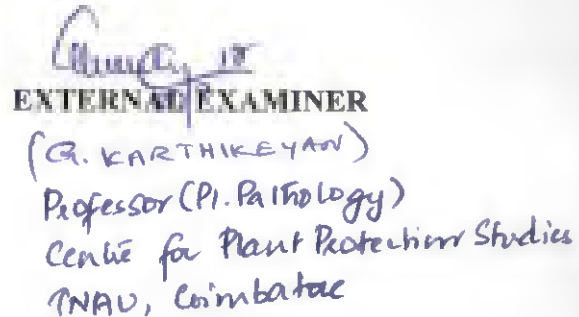 EXTERNAL EXAMINER
(G. KARTHIKEYAN)
Professor (Pl. Pathology)
Centre for Plant Protection Studies
TNAU, Coimbatore